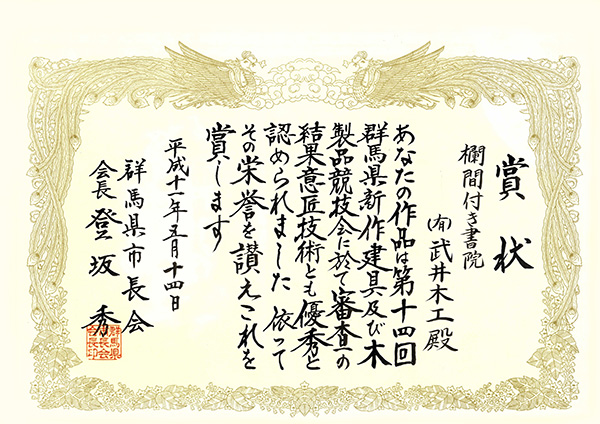 賞状
欄間付き書院
(有)武井木工殿
あなたの作品は第十四回
群馬県新作建具及び木
製品競技会に於て審査の
結果意匠技術とも優秀と
認められました 依って
その栄誉を讃えこれを
賞します
平成十一年五月十四日
群馬県市長会
会長 登坂 秀
群馬県
市長会
会長印